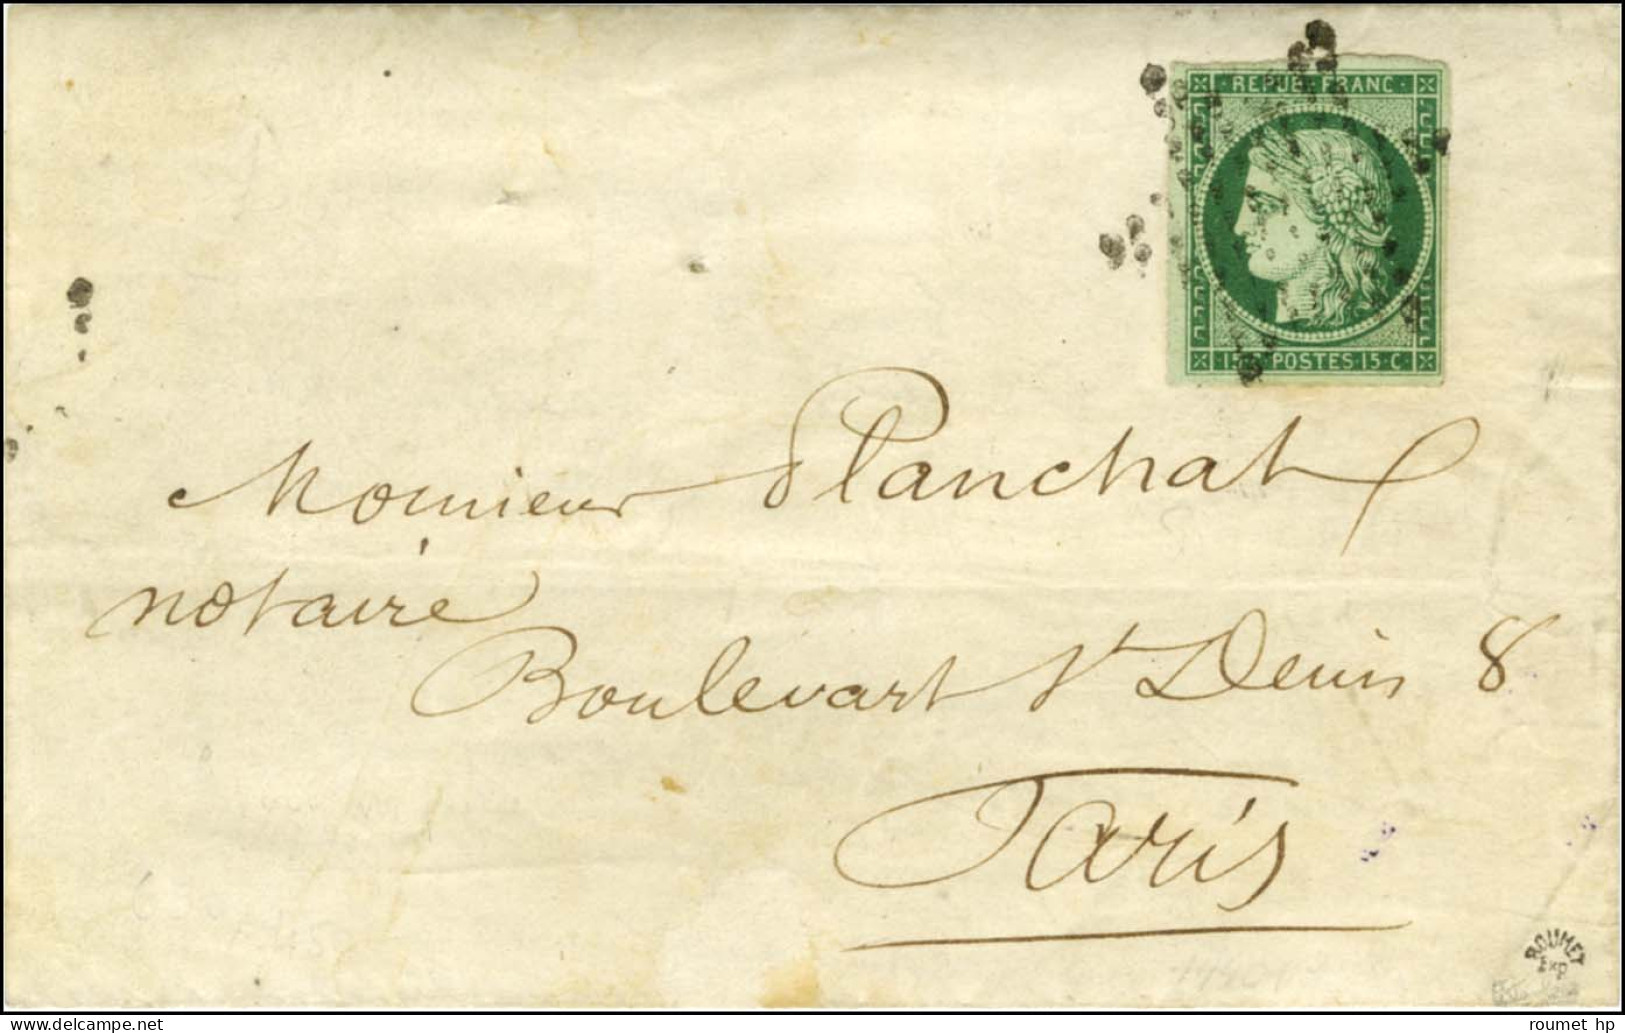 REPUB. FRANC
15 POSTES 15 C
Monsieur Planchat
notaire
Boulevart St Denis 8
Paris
ROUMET
Exp
www.delcampe.net
roumet_hp